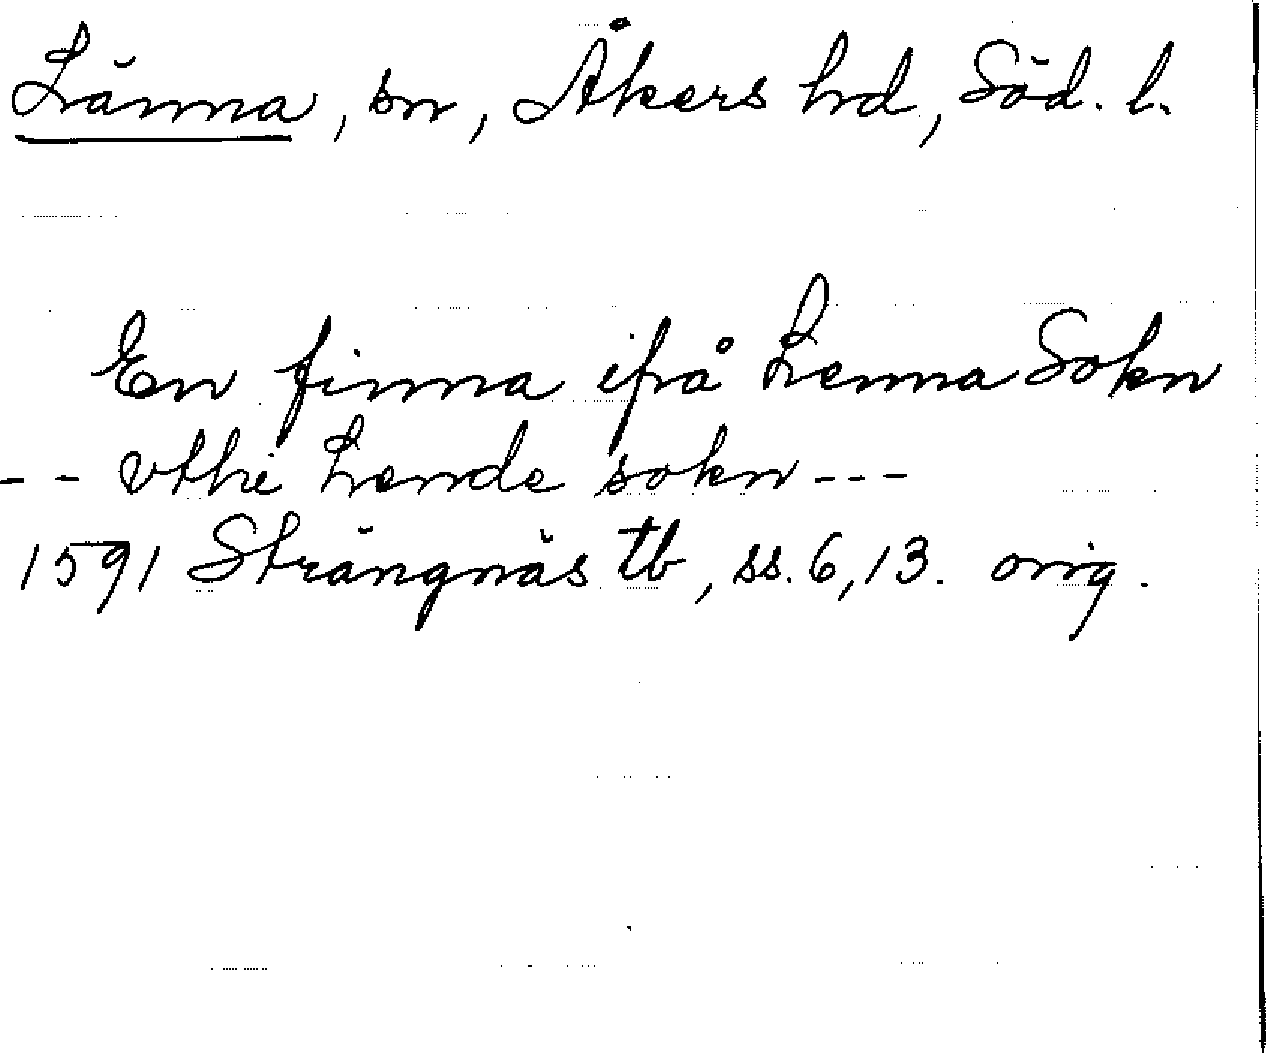 Länna, sn, Åkers hd, Söd. l.
En finna ifrå Lenna Sokn
-- vthi Lende sokn ---
1591 Strängnäs tb, ss. 6, 13. orig.